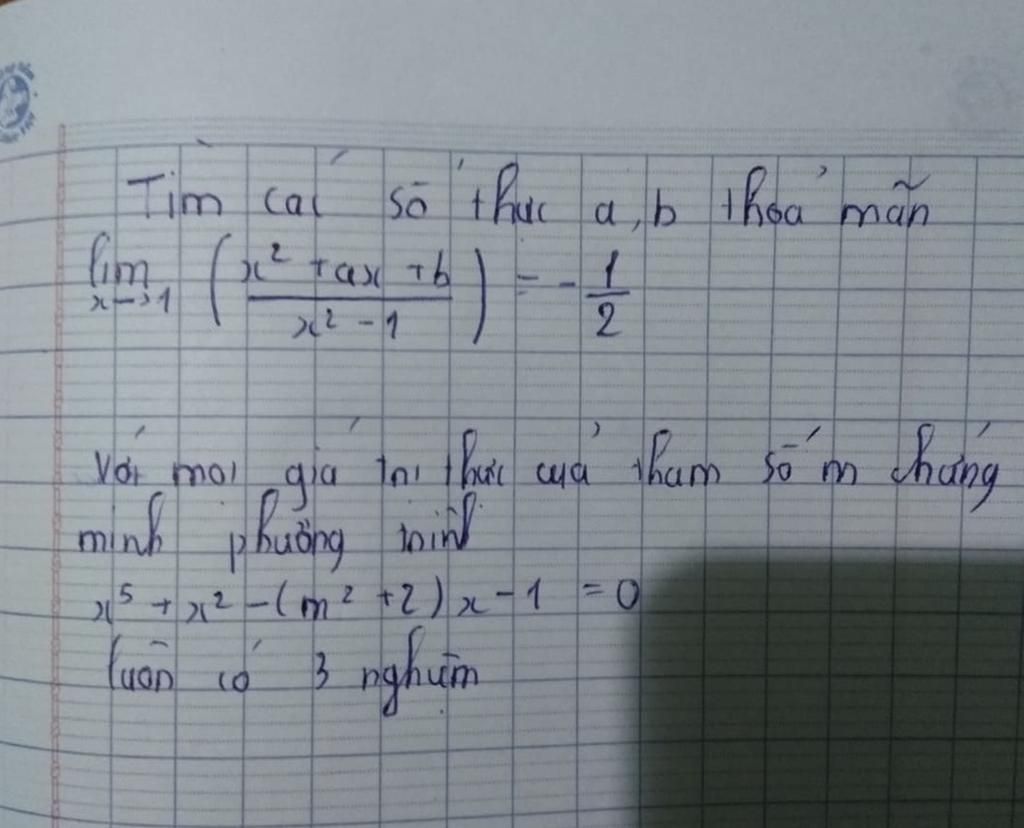 Tìm các số thực a, b thỏa mãn
lim x->1 ( (x² + ax + b) / (x² - 1) ) = - 1/2
Với mọi giá trị thực của tham số m chứng
minh phương trình
x⁵ + x² - (m² + 2) x - 1 = 0
luôn có 3 nghiệm